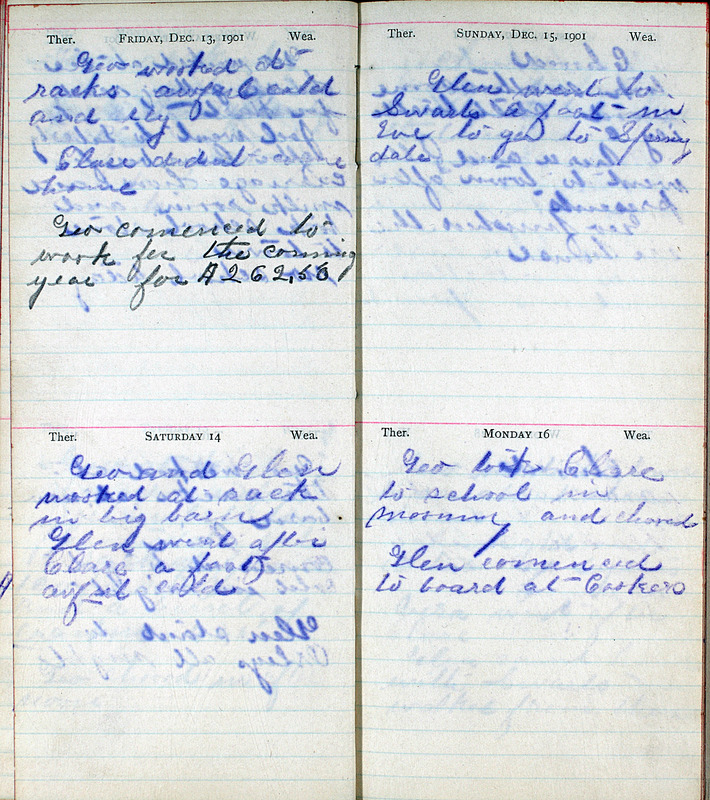 Ther. FRIDAY, DEC. 13, 1901 Wea.
Geo worked at
racks awful cold
and icy
Clare didnt come
home
Geo comenced to
work for the coming
year for $262,50
Ther. SATURDAY 14 Wea.
Geo and Glen
worked at rack
in big barn
Glen went after
Clare a foot
awful cold
Ther. SUNDAY, DEC. 15, 1901 Wea.
Glen went to
Swarts a foot in
Eve to go to Spring
dale
Ther. MONDAY 16 Wea.
Geo took Clare
to school in
morning and chored
Glen comenced
to board at Cookers